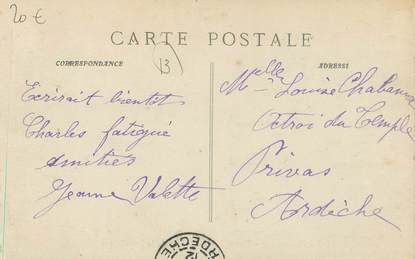 20 €
CARTE POSTALE
13
CORRESPONDANCE
ADRESSE
Ecrirait bientôt
Charles fatigué
amitiés
Jeanne Valette
Melle Louise Chabanne
Octroi du Temple
Privas
Ardèche
RDECHE